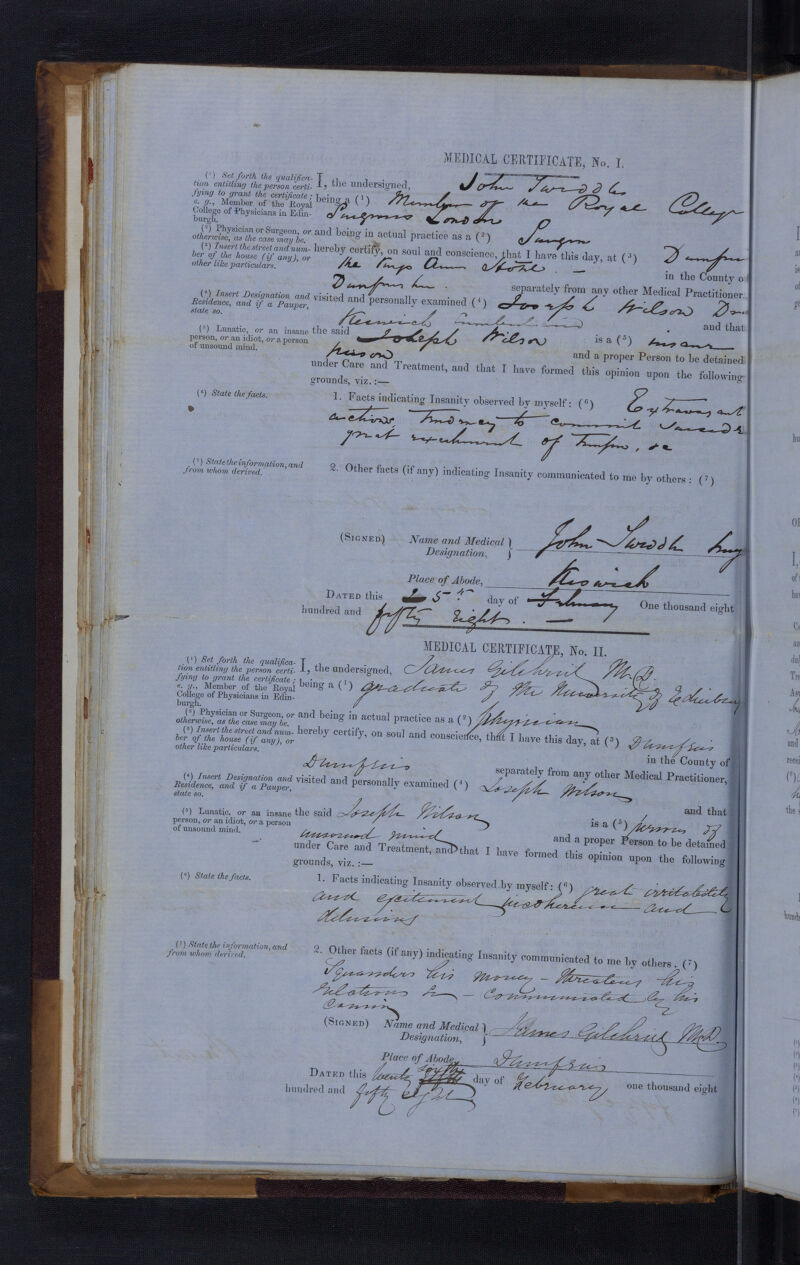 MEDICAL CERTIFICATE, No. I.
(¹) Set forth the qualifica-
tion entitling the person certi-
fying to grant the certificate;
e. g., Member of the Royal
College of Physicians in Edin-
burgh.
I, the undersigned, John Tweddle
being a (¹) Member of the Royal College
Surgeons London
(²) Physician or Surgeon, or
otherwise, as the case may be.
and being in actual practice as a (²) Surgeon
(³) Insert the street and num-
ber of the house (if any), or
other like particulars.
hereby certify, on soul and conscience, that I have this day, at (³) Dumfries
the Kings Arms Hotel. — in the County o
separately from any other Medical Practitioner
(⁴) Insert Designation and
Residence, and if a Pauper,
state so.
visited and personally examined (⁴) Joseph Wilson
Keswick Cumberland and that
(⁵) Lunatic, or an insane
person, or an idiot, or a person
of unsound mind.
the said Joseph Wilson is a (⁵) insane
person and a proper Person to be detained
under Care and Treatment, and that I have formed this opinion upon the following
grounds, viz. :—
(⁶) State the facts.
1. Facts indicating Insanity observed by myself: (⁶) Extravagant
actions tendency to commit suicide
great excitement of temper, &c
(⁷) State the information, and
from whom derived.
2. Other facts (if any) indicating Insanity communicated to me by others : (⁷)
(SIGNED) Name and Medical
Designation, } John Tweddle
Place of Abode, Keswick
DATED this 25th day of February One thousand eight
hundred and fifty Eight. —
MEDICAL CERTIFICATE, No. II.
(¹) Set forth the qualifica-
tion entitling the person certi-
fying to grant the certificate;
e. g., Member of the Royal
College of Physicians in Edin-
burgh.
I, the undersigned, James Gilchrist M.D.
being a (¹) graduate of the University of Edinburgh
(²) Physician or Surgeon, or
otherwise, as the case may be.
and being in actual practice as a (²) Physician
(³) Insert the street and num-
ber of the house (if any), or
other like particulars.
hereby certify, on soul and conscience, that I have this day, at (³) Dumfries
in the County of
Dumfries separately from any other Medical Practitioner,
(⁴) Insert Designation and
Residence, and if a Pauper,
state so.
visited and personally examined (⁴) Joseph Wilson
and that
(⁵) Lunatic, or an insane
person, or an idiot, or a person
of unsound mind.
the said Joseph Wilson is a (⁵) person of
unsound mind and a proper Person to be detained
under Care and Treatment, and that I have formed this opinion upon the following
grounds, viz. :—
(⁶) State the facts.
1. Facts indicating Insanity observed by myself: (⁶) great irritability
and excitement incoherence and
delusions
(⁷) State the information, and
from whom derived.
2. Other facts (if any) indicating Insanity communicated to me by others. (⁷)
Squanders his money – threatens his
relations &c – communicated by his
cousin
(SIGNED) Name and Medical
Designation, } James Gilchrist M.D.
Place of Abode, Dumfries
DATED this twenty day of February one thousand eight
hundred and fifty eight